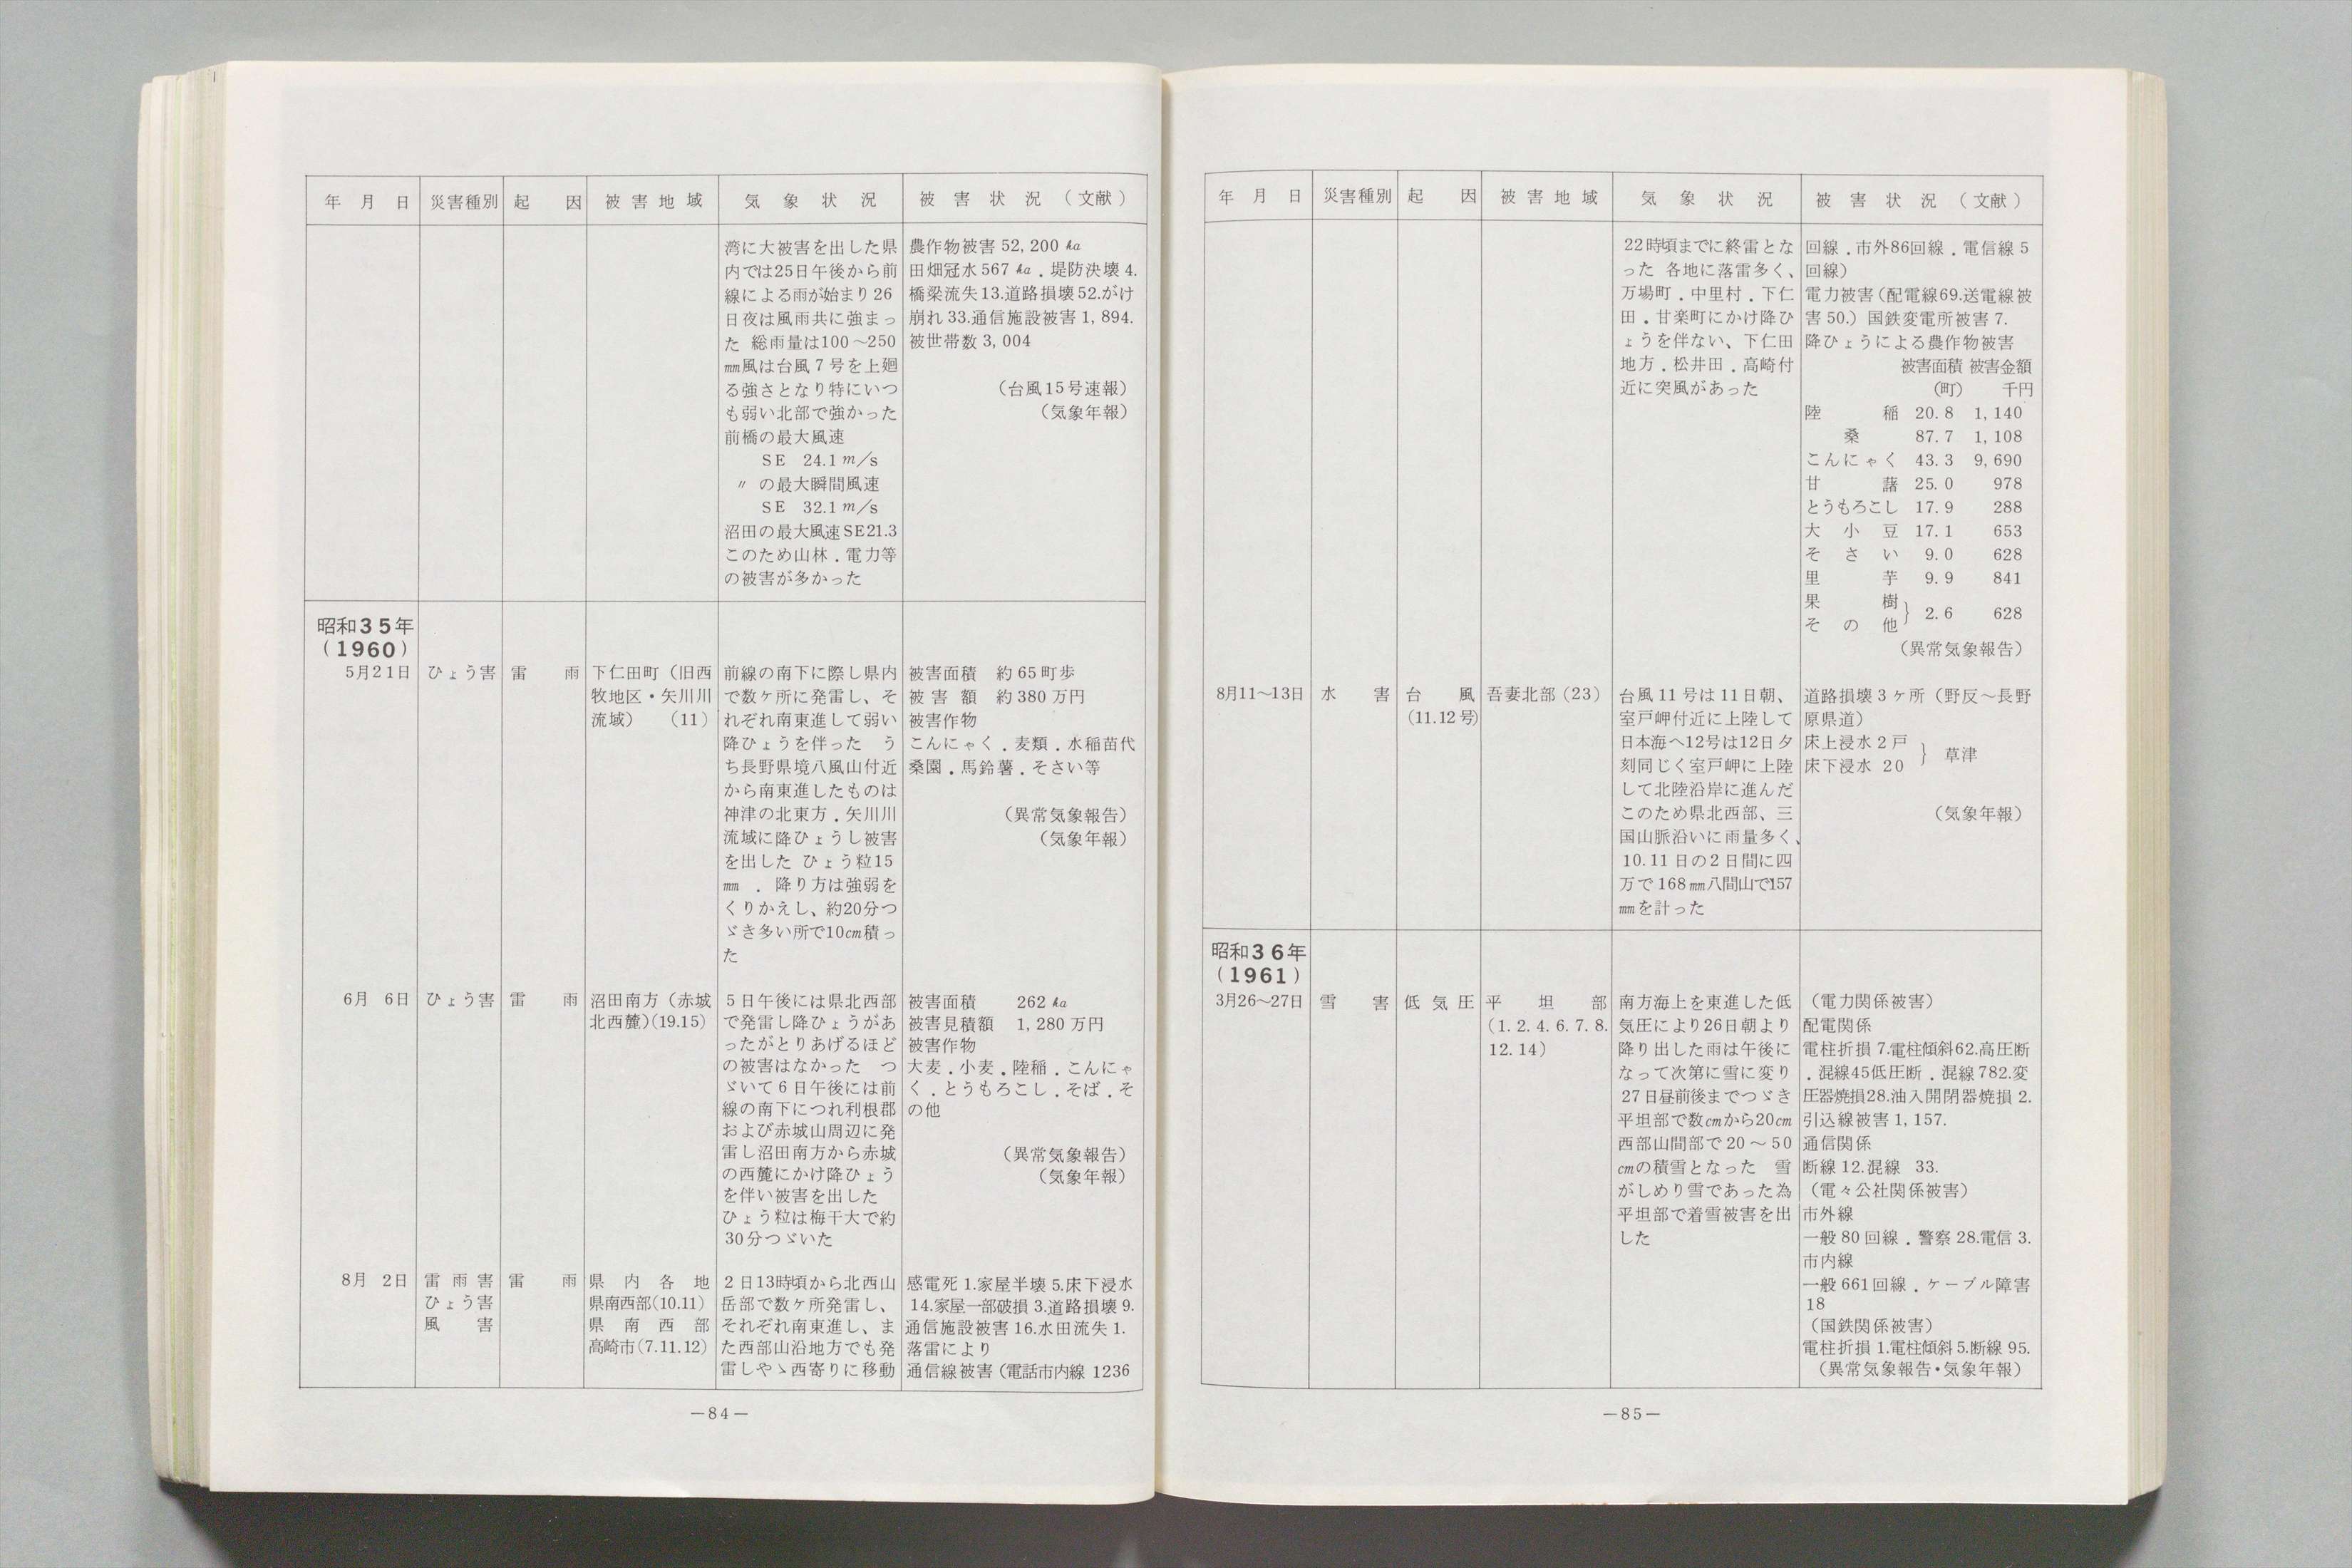 年 月 日 災害種別 起 因 被害地域 気象状況 被害状況（文献）
湾に大被害を出した県
内では25日午後から前
線による雨が始まり26
日夜は風雨共に強まっ
た 総雨量は100～250
㎜風は台風7号を上廻
る強さとなり特にいつ
も弱い北部で強かった
前橋の最大風速
SE 24.1m/s
〃 の最大瞬間風速
SE 32.1m/s
沼田の最大風速SE21.3
このため山林．電力等
の被害が多かった
農作物被害52,200ha
田畑冠水567ha．堤防決壊4.
橋梁流失13.道路損壊52.がけ
崩れ33.通信施設被害1,894.
被世帯数3,004
（台風15号速報）
（気象年報）
昭和35年
（1960）
5月21日 ひょう害 雷 雨
下仁田町（旧西
牧地区・矢川川
流域） （11）
前線の南下に際し県内
で数ヶ所に発雷し、そ
れぞれ南東進して弱い
降ひょうを伴った う
ち長野県境八風山付近
から南東進したものは
神津の北東方．矢川川
流域に降ひょうし被害
を出した ひょう粒15
㎜ ．降り方は強弱を
くりかえし、約20分つ
ゞき多い所で10㎝積っ
た
被害面積 約65町歩
被害額 約380万円
被害作物
こんにゃく．麦類．水稲苗代
桑園．馬鈴薯．そさい等
（異常気象報告）
（気象年報）
6月 6日 ひょう害 雷 雨
沼田南方（赤城
北西麓）(19.15)
5日午後には県北西部
で発雷し降ひょうがあ
ったがとりあげるほど
の被害はなかった つ
ゞいて6日午後には前
線の南下につれ利根郡
および赤城山周辺に発
雷し沼田南方から赤城
の西麓にかけ降ひょう
を伴い被害を出した
ひょう粒は梅干大で約
30分つゞいた
被害面積 262ha
被害見積額 1,280万円
被害作物
大麦．小麦．陸稲．こんにゃ
く．とうもろこし．そば．そ
の他
（異常気象報告）
（気象年報）
8月 2日
雷雨害
ひょう害
風 害
雷 雨
県内各地
県南西部(10.11)
県南西部
高崎市(7.11.12)
2日13時頃から北西山
岳部で数ヶ所発雷し、
それぞれ南東進し、ま
た西部山沿地方でも発
雷しやゝ西寄りに移動
感電死1.家屋半壊5.床下浸水
14.家屋一部破損3.道路損壊9.
通信施設被害16.水田流失1.
落雷により
通信線被害（電話市内線1236
—84—
年 月 日 災害種別 起 因 被害地域 気象状況 被害状況（文献）
22時頃までに終雷とな
った 各地に落雷多く、
万場町．中里村．下仁
田．甘楽町にかけ降ひ
ょうを伴ない、下仁田
地方．松井田．高崎付
近に突風があった
回線．市外86回線．電信線5
回線）
電力被害（配電線69.送電線被
害50.）国鉄変電所被害7.
降ひょうによる農作物被害
被害面積 被害金額
（町） 千円
陸稲 20.8 1,140
桑 87.7 1,108
こんにゃく 43.3 9,690
甘藷 25.0 978
とうもろこし 17.9 288
大小豆 17.1 653
そさい 9.0 628
里芋 9.9 841
果樹
その他 } 2.6 628
（異常気象報告）
8月11～13日 水 害
台 風
(11.12号)
吾妻北部（23）
台風11号は11日朝、
室戸岬付近に上陸して
日本海へ12号は12日夕
刻同じく室戸岬に上陸
して北陸沿岸に進んだ
このため県北西部、三
国山脈沿いに雨量多く、
10.11日の2日間に四
万で168㎜八間山で157
㎜を計った
道路損壊3ヶ所（野反～長野
原県道）
床上浸水2戸
床下浸水 20 } 草津
（気象年報）
昭和36年
（1961）
3月26～27日 雪 害 低気圧
平坦部
（1.2.4.6.7.8.
12.14）
南方海上を東進した低
気圧により26日朝より
降り出した雨は午後に
なって次第に雪に変り
27日昼前後までつゞき
平坦部で数㎝から20㎝
西部山間部で20～50
㎝の積雪となった 雪
がしめり雪であった為
平坦部で着雪被害を出
した
（電力関係被害）
配電関係
電柱折損7.電柱傾斜62.高圧断
．混線45低圧断．混線782.変
圧器焼損28.油入開閉器焼損2.
引込線被害1,157.
通信関係
断線12.混線 33.
（電々公社関係被害）
市外線
一般80回線．警察28.電信3.
市内線
一般661回線．ケーブル障害
18
（国鉄関係被害）
電柱折損1.電柱傾斜5.断線95.
（異常気象報告・気象年報）
—85—